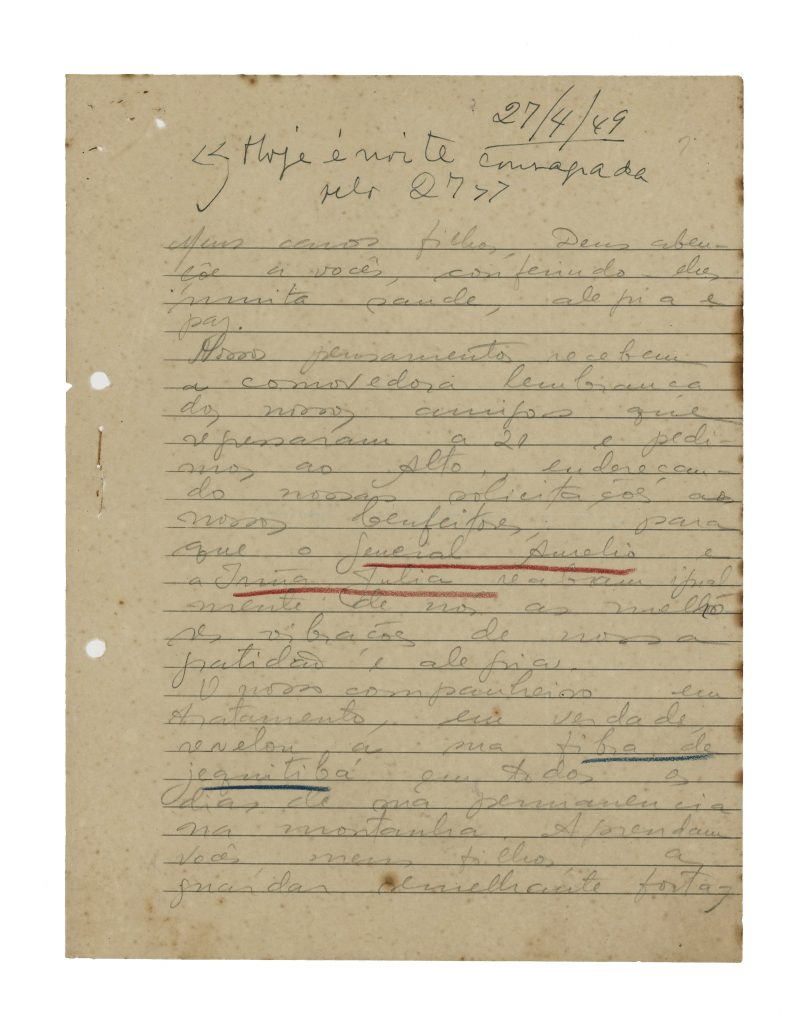 27/4/49
<< Hoje é noite consagrada
pelo 27 >>
Meus caros filhos, Deus aben-
çôe a vocês, conferindo-lhes
muita saude, alegria e
paz.
Nosso pensamento recebem
a comovedora lembrança
dos nossos amigos que
regressaram a 21 e pedi-
mos ao Alto, endereçan-
do nossas solicitações aos
nossos benfeitores, para
que o General Aurelio e
a Irmã Julia recebam igual
mente de nós as melho
res vibrações de nossa
gratidão e alegria.
O nosso companheiro em
tratamento, em verdade,
revelou a sua fibra de
jequitibá em todos os
dias de sua permanencia
na montanha. Aprendam
vocês meus filhos, a
guardar semelhante forta-